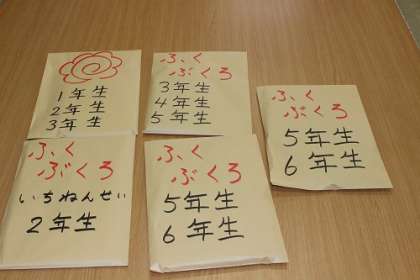 1年生
2年生
3年生
ふく
ぶくろ
3年生
4年生
5年生
ふく
ぶくろ
5年生
6年生
ふく
ぶくろ
いちねんせい
2年生
ふく
ぶくろ
5年生
6年生